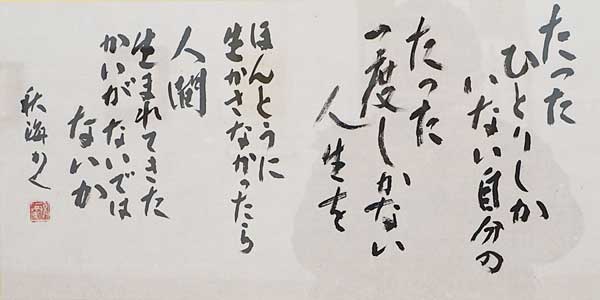 たった
ひとりしか
いない自分の
たった
一度しかない
人生を
ほんとうに
生かさなかったら
人間
生まれてきた
かいがないでは
ないか
秋海かく